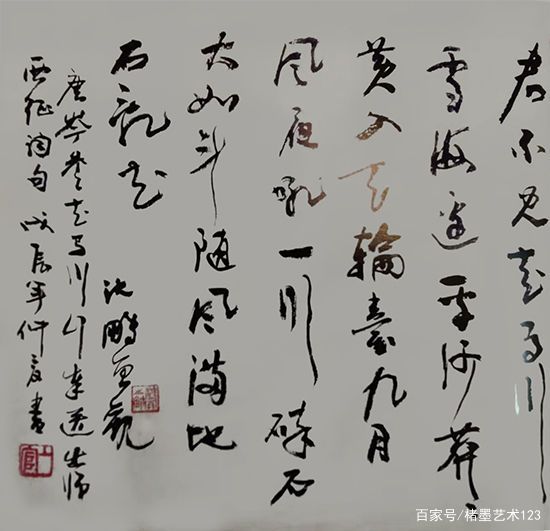 君不见走马川
雪海边平沙莽莽
黄入天輪臺九月
风夜吼一川碎石
大如斗随风满地
石乱走
唐岑参走马川行奉送出师
西征诗句 戊辰年仲夏书
沈鹏重观
百家号/楮墨艺术123